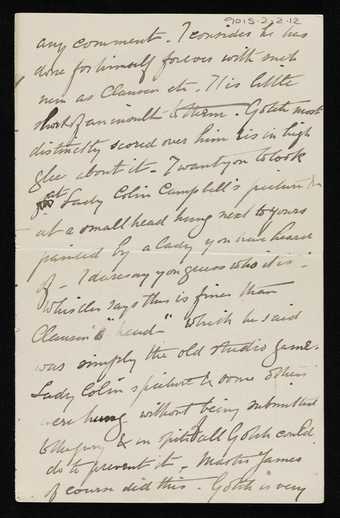 9015-2-2-12
any comment. I consider he has
done for himself forever with such
men as Clausen etc. It is little
short of an insult to them. Gotch most
distinctly scored over him & is in high
glee about it. I want you to look
at Lady Colin Campbell's picture &
at a small head hung next to yours
painted by a lady you have heard
of - I daresay you guess who it is -
Whistler says this is finer than
Clausen's "head" which he said
was simply the old studio game.
Lady Colin's picture & some others
were hung without being submitted
to the jury & in spite of all Gotch could
do to prevent it. Master James
of course did this. Gotch is very